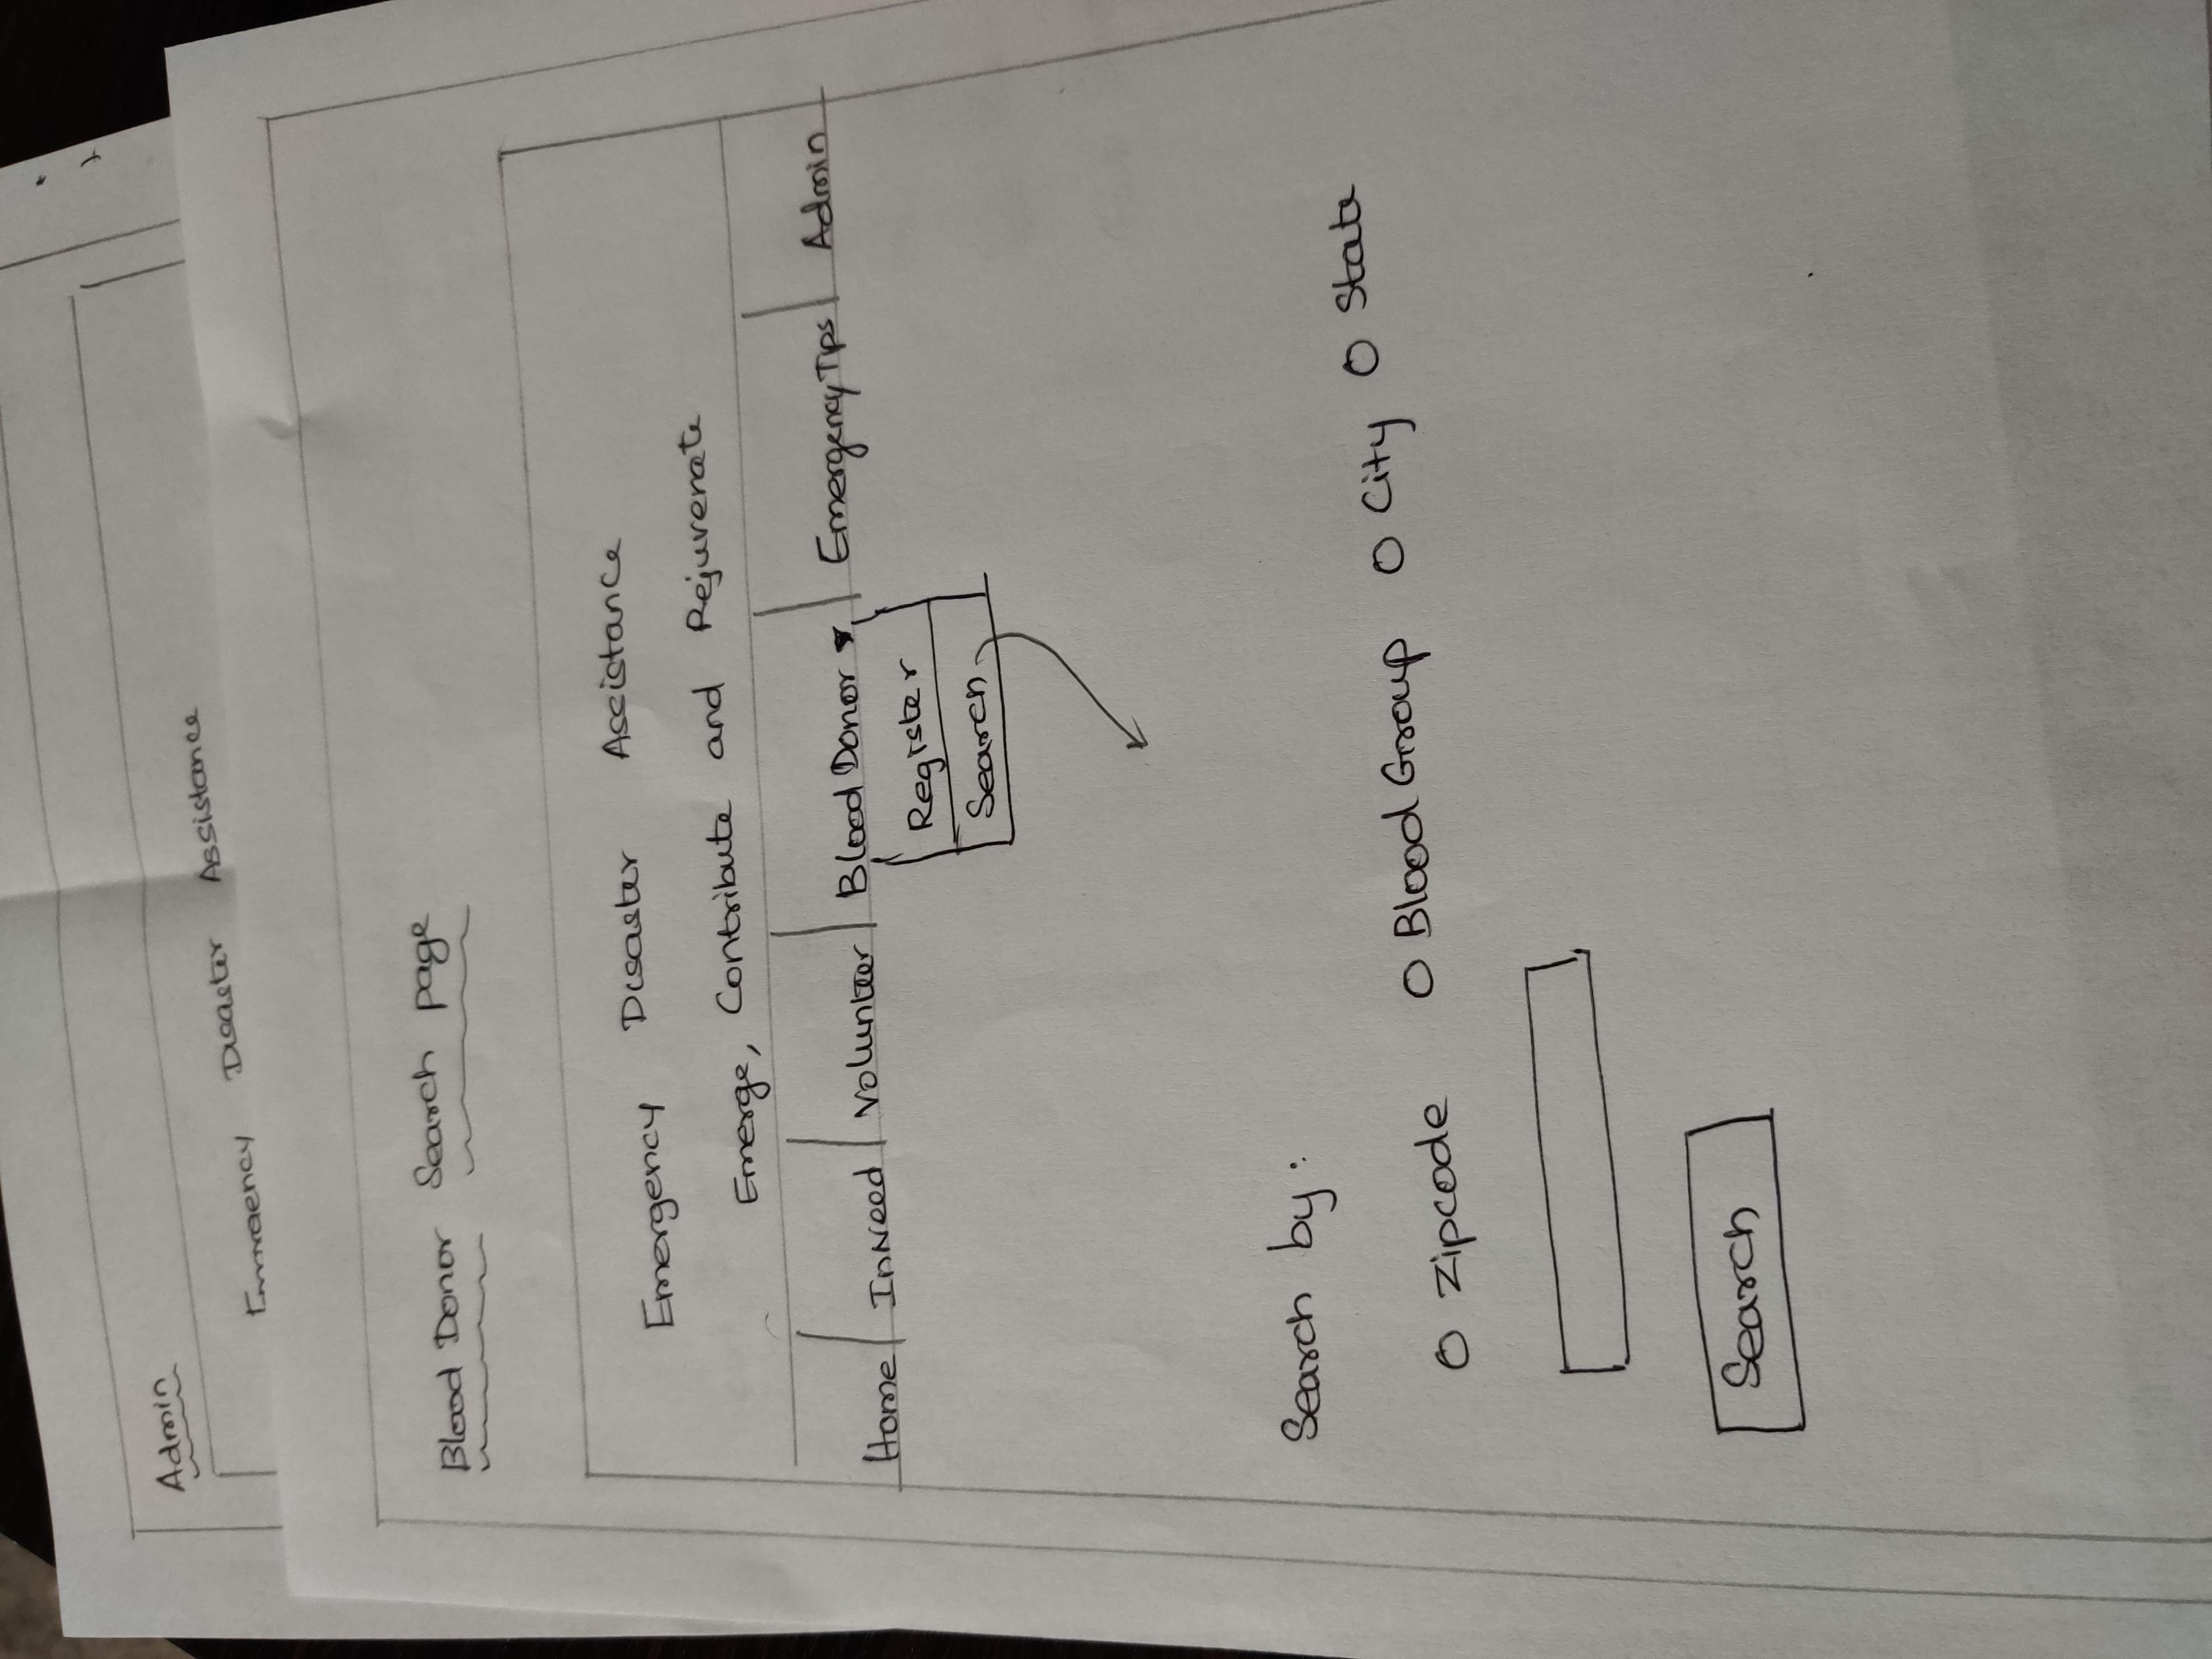 Admin
Emergency Disaster Assistance
Blood Donor Search page
Emergency Disaster Assistance
Emerge, Contribute and Rejuvenate
Home InNeed Volunteer Blood Donor Emergency Tips Admin
Register
Search
Search by:
Zipcode Blood Group City State
Search